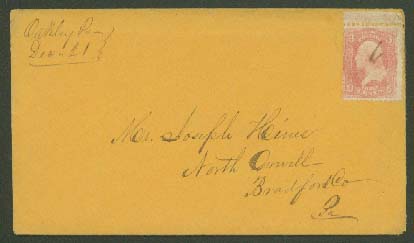 Oakley Pa
Dec. 21
Mr. Joseph Hine
North Orwell
Bradford Co
Pa